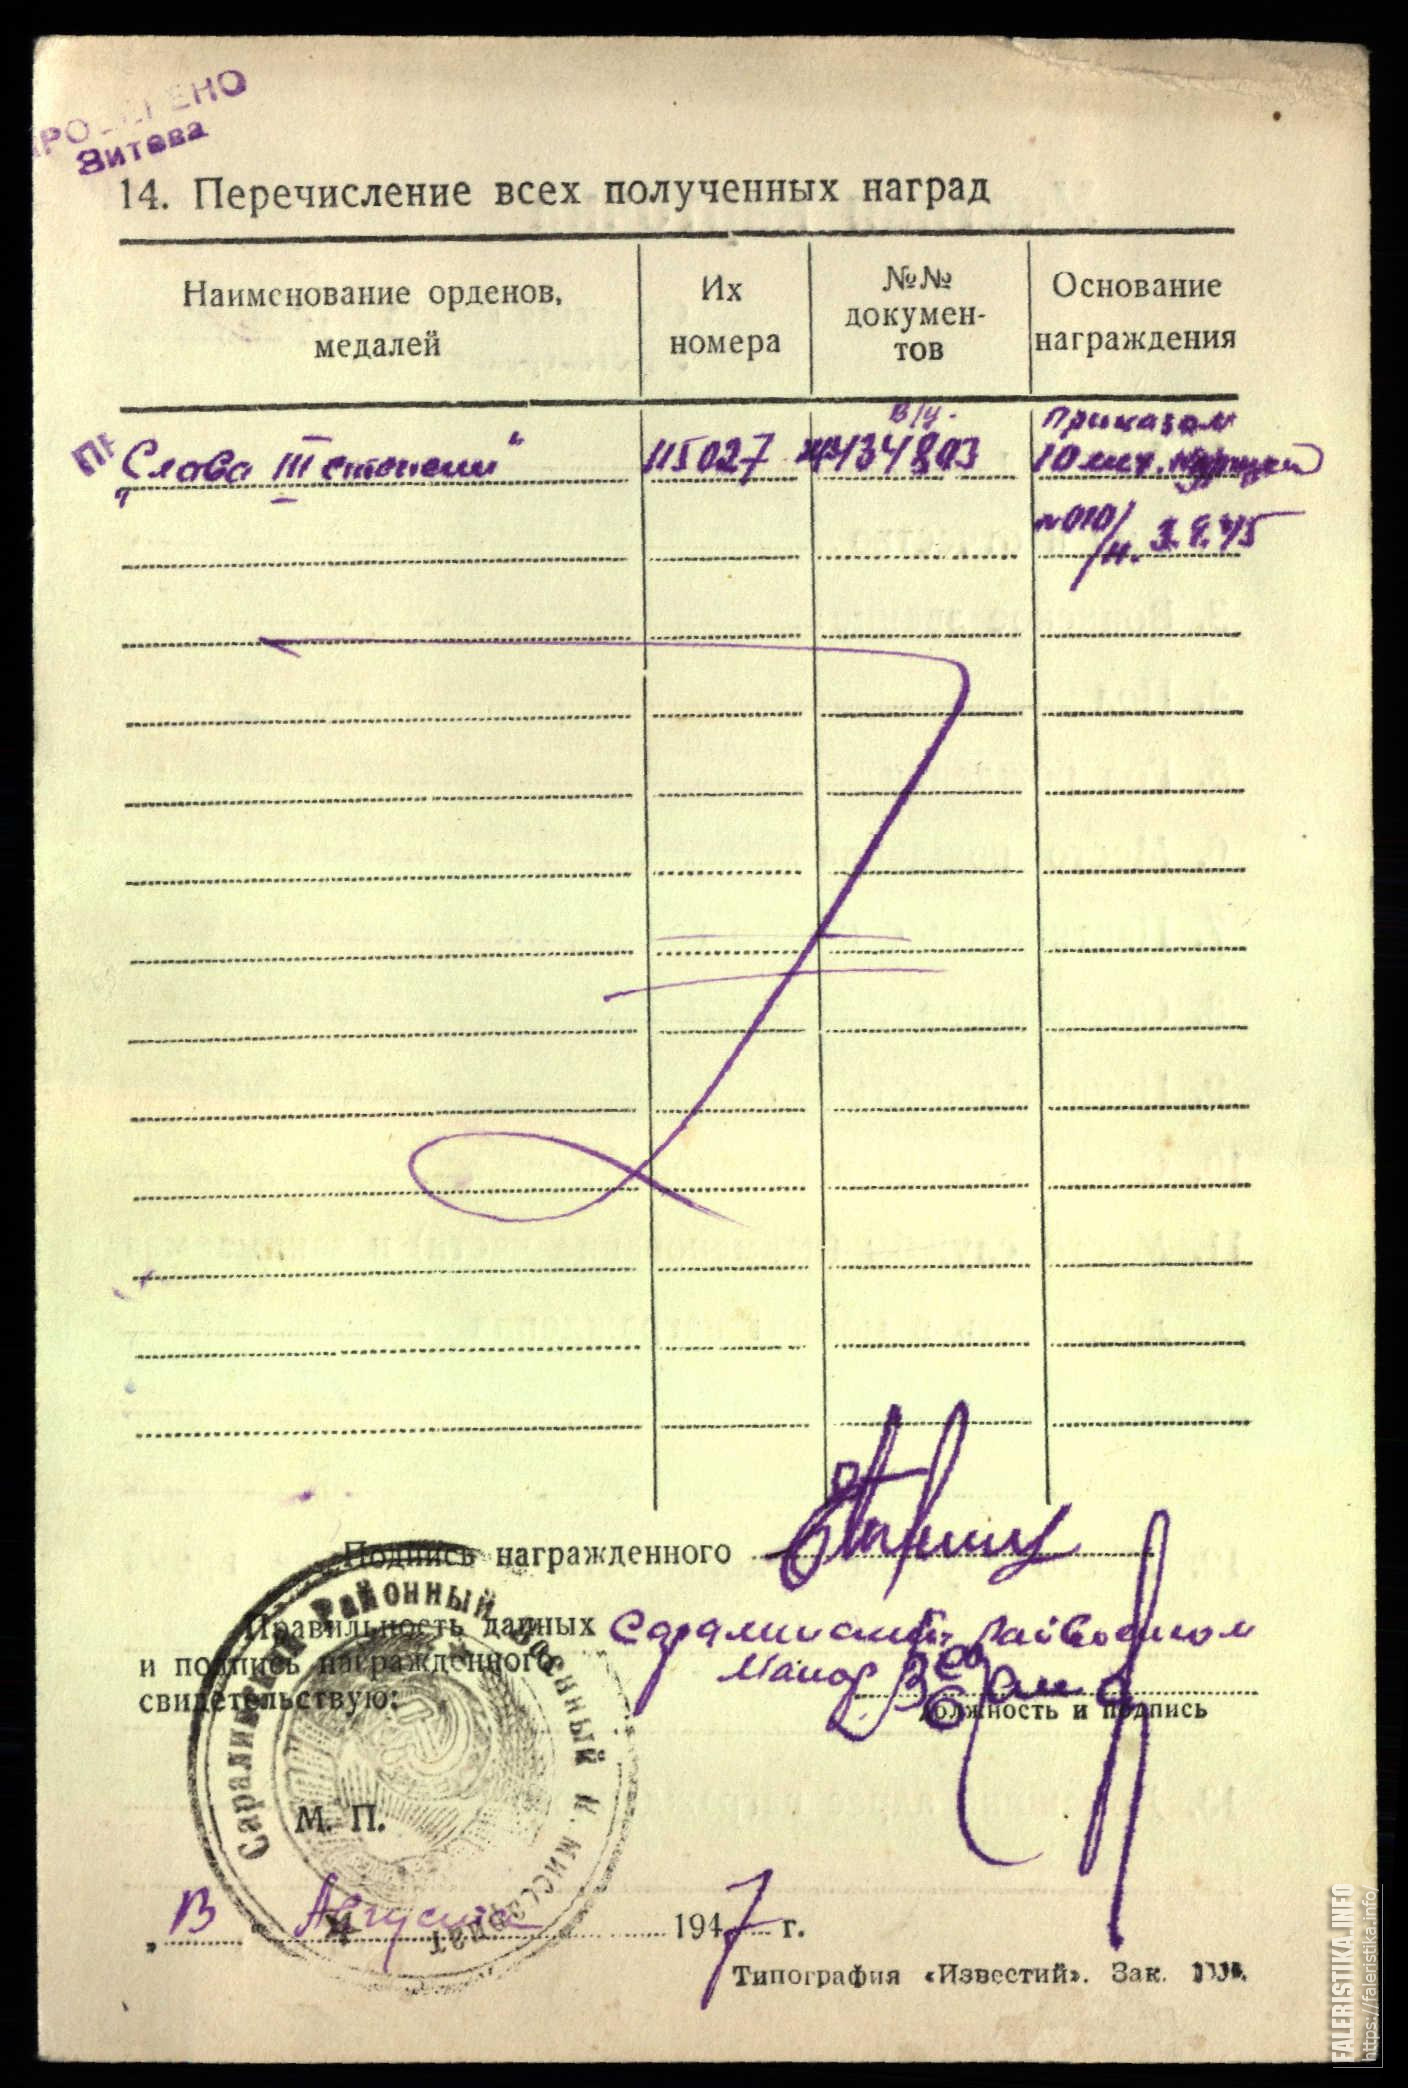 Витева
14. Перечисление всех полученных наград
Наименование орденов, медалей
Их номера
№№ документов
Основание награждения
"Слава III степени"
115027
в/у.
434803
Приказом
10
№010/н. 3.9.45
Подпись награжденного
Правильность данных
и подпись награжденного
свидетельствую:
Майор
должность и подпись
Саралинский Районный Военный Комиссариат
М. П.
„13" Августа 1947 г.
Типография «Известий». Зак.
FALERISTIKA.INFO
https://faleristika.info/